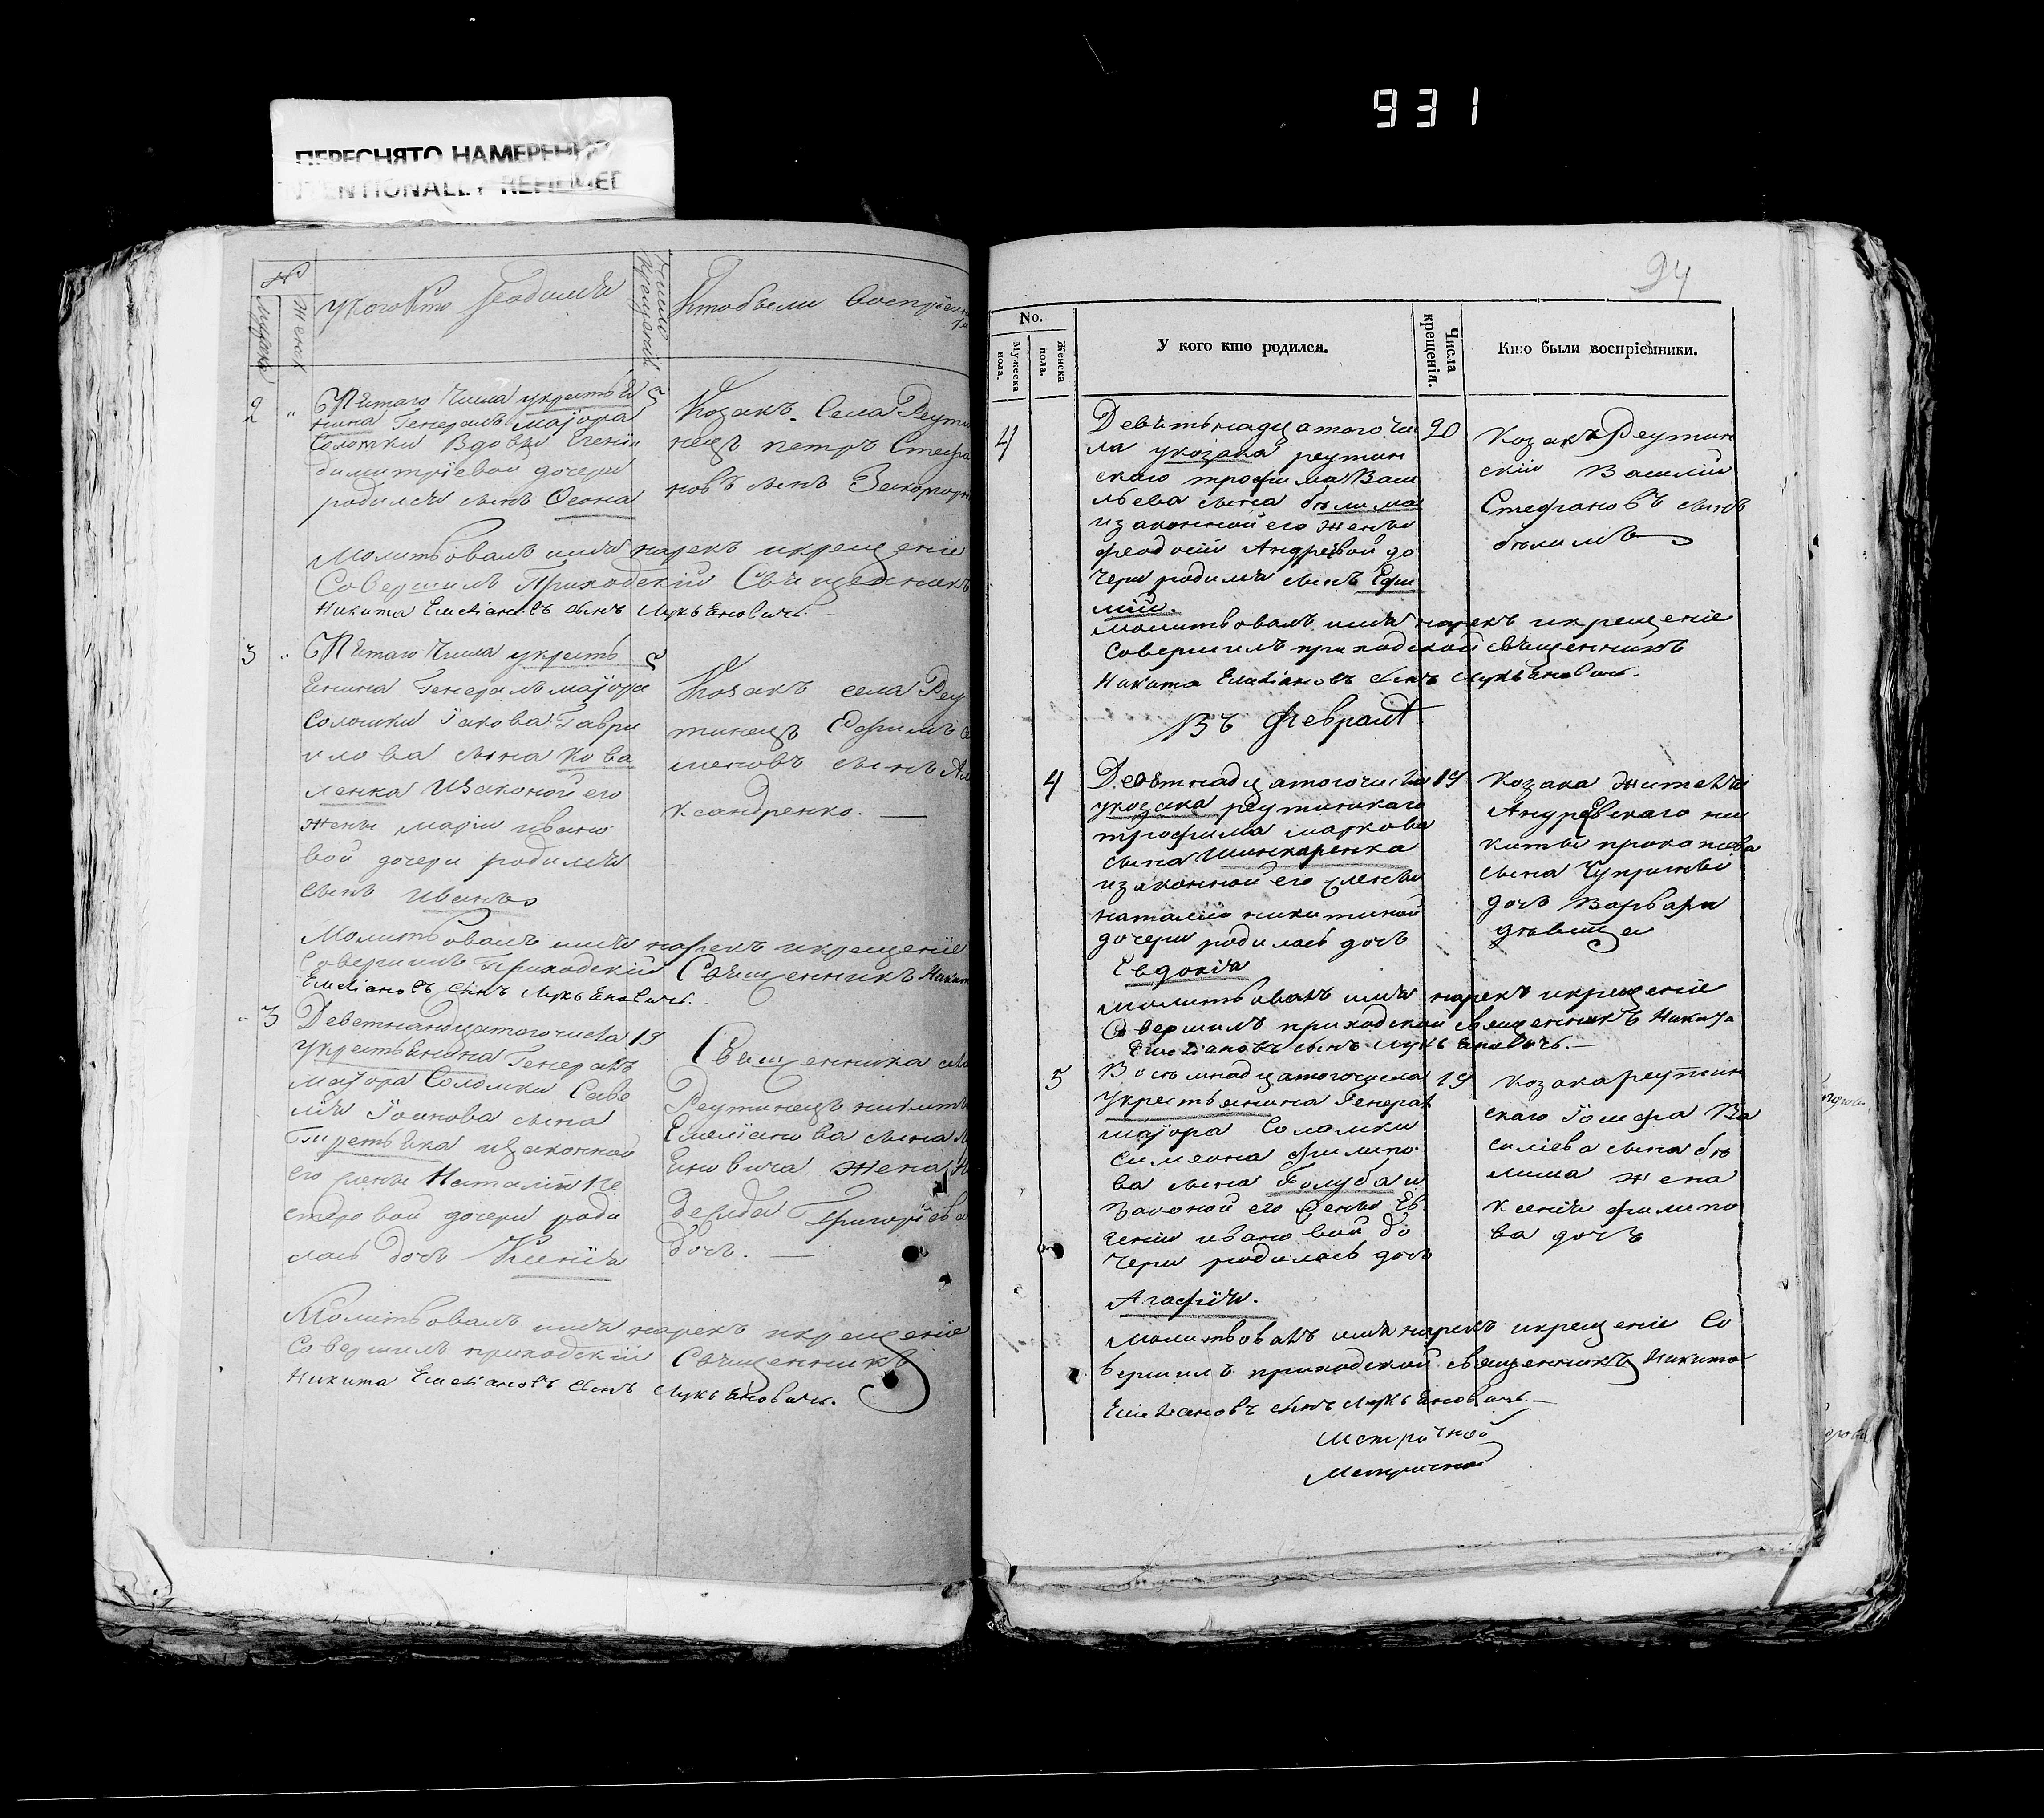 931
ПЕРЕСНЯТО НАМЕРЕННО
INTENTIONALLY REFILMED
№
Мужск
Женск
У кого кто родился
Число крещения
Кто были воспріемни
2 "
Пятаго числа у крестья 5
нина Генералъ маіора
Соломки Вдовы
димитріевой дочери
родился сынъ
Козакъ Села Реути
нецъ петръ Стефа
новъ сынъ
Молитвовалъ имя нарекъ и крещеніе
Совершилъ Приходскій Священникъ
Никита Емеліановъ сынъ Лукьяновичъ.
3 "
Пятаго числа у кресть 5
янина Генералъ маіора
Соломки Іакова Гаври
илова сына Кова
ленка и законой его
жены маріи ивано
вой дочери родился
сынъ иванъ
Козакъ села Реу
тинецъ Ефимъ
меновъ сынъ Ал
ксандренко. —
Молитвовалъ имя нарекъ и крещеніе
Совершилъ Приходскій Священникъ Никита
Емеліановъ сынъ Лукьяновичъ.
" 3
Деветнандцатого числа 19
у крестьянина Генералъ
маіора Соломки Саве
лія Іоанова сына
Третьяка и законной
его жены Наталіи Не
стеровой дочери роди
лась дочь Ксенія
Священника села
Реутинецъ никиты
Емеліанова сына Л
яновича жена Н
Григоріева
дочь. —
Молитвовалъ имя нарекъ и крещеніе
Совершилъ приходскій Священникъ
Никита Емеліановъ сынъ Лукьяновичъ.
94
No.
Мужеска пола.
Женска пола.
У кого кто родился.
Числа крещенія.
Кто были воспріемники.
4
Девятьнадцатого чи 20
ла у козака реутин
скаго трофима Васи
льева сына былима
и законной его жены
феодосіи Андреевой до
чери родился сынъ Ефи
мій.
Козакъ Реутин
скій Василий
Стефановъ сынъ
былимъ
молитвовалъ имя нарекъ и крещеніе
совершилъ приходской священникъ
Никита Емеліановъ сынъ Лукьяновичъ.
Въ февралѣ
4
Девятнадцатого числа 19
у козака реутинскаго
трофима маркова
сына Шинкаренка
и законной его жены
наталіи никитиной
дочери родилась дочь
Евдокія
Козака жителя
Андреевскаго ни
киты прокопіева
сына Чуприны
дочь Варвара
девица
молитвовалъ имя нарекъ и крещеніе
Совершилъ приходской священникъ Никита
Емеліановъ сынъ Лукьяновичъ. —
5
Восьмнадцатого числа 19
у крестьянина Генералъ
маіора Соломки
симеона филипо
ва сына Голуба и
законой его жены Ев
геніи ивановой до
чери родилась дочь
Агафія.
Козака реутин
скаго Іосифа Ва
силіева сына бы
лима жена
ксенія филипо
ва дочь
молитвовалъ имя нарекъ и крещеніе Со
вершилъ приходской священникъ Никита
Емеліановъ сынъ Лукьяновичъ. —
Метричной
Метричной